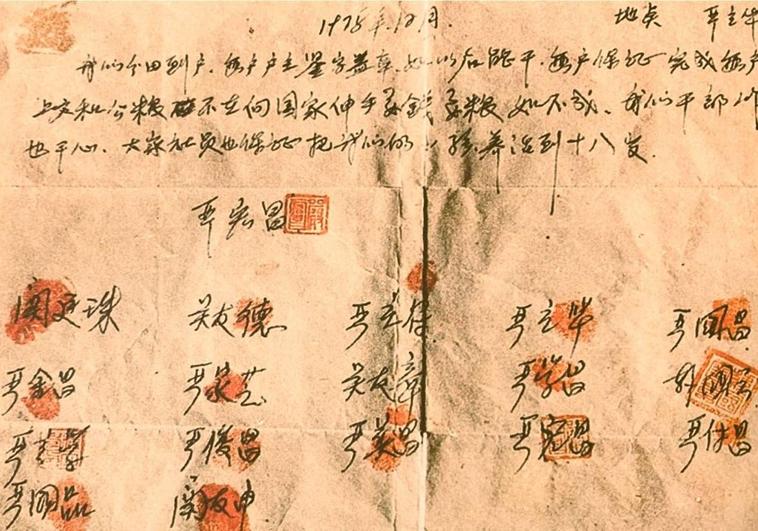 1978年12月. 地点 严立华
我们分田到户.每户户主签字盖章.如以后能干.每户保证完成每户
上交和公粮不在向国家伸手要钱要粮如不成、我们干部作
也干心、大家社员也保证把我们的小孩养活到十八岁.
严宏昌
关廷珠 关友德 严立符 严立华 严国昌
严金昌 严家芝 关友章 严学昌 韩国云
严立学 严俊昌 严美昌 严宏昌 严付昌
严国品 关友申